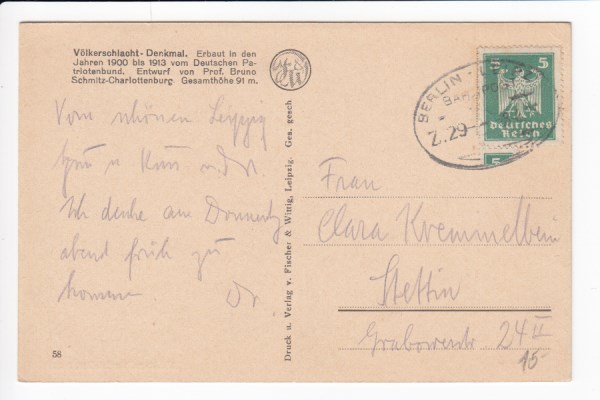 Völkerschlacht-Denkmal. Erbaut in den
Jahren 1900 bis 1913 vom Deutschen Pa-
triotenbund. Entwurf von Prof. Bruno
Schmitz-Charlottenburg Gesamthöhe 91 m.
Vom schönen Leipzig
Gruß u Kuss
Ich denke am Donnerstg
abend früh zu
kommen
58
Druck u. Verlag v. Fischer & Wittig, Leipzig. Ges. gesch.
5 5
Deutsches
Reich
BERLIN - LE
BAHNPOS
Z.29
5
Frau
Clara Kremmelbein
Stettin
Grabowerstr 24 II
15-